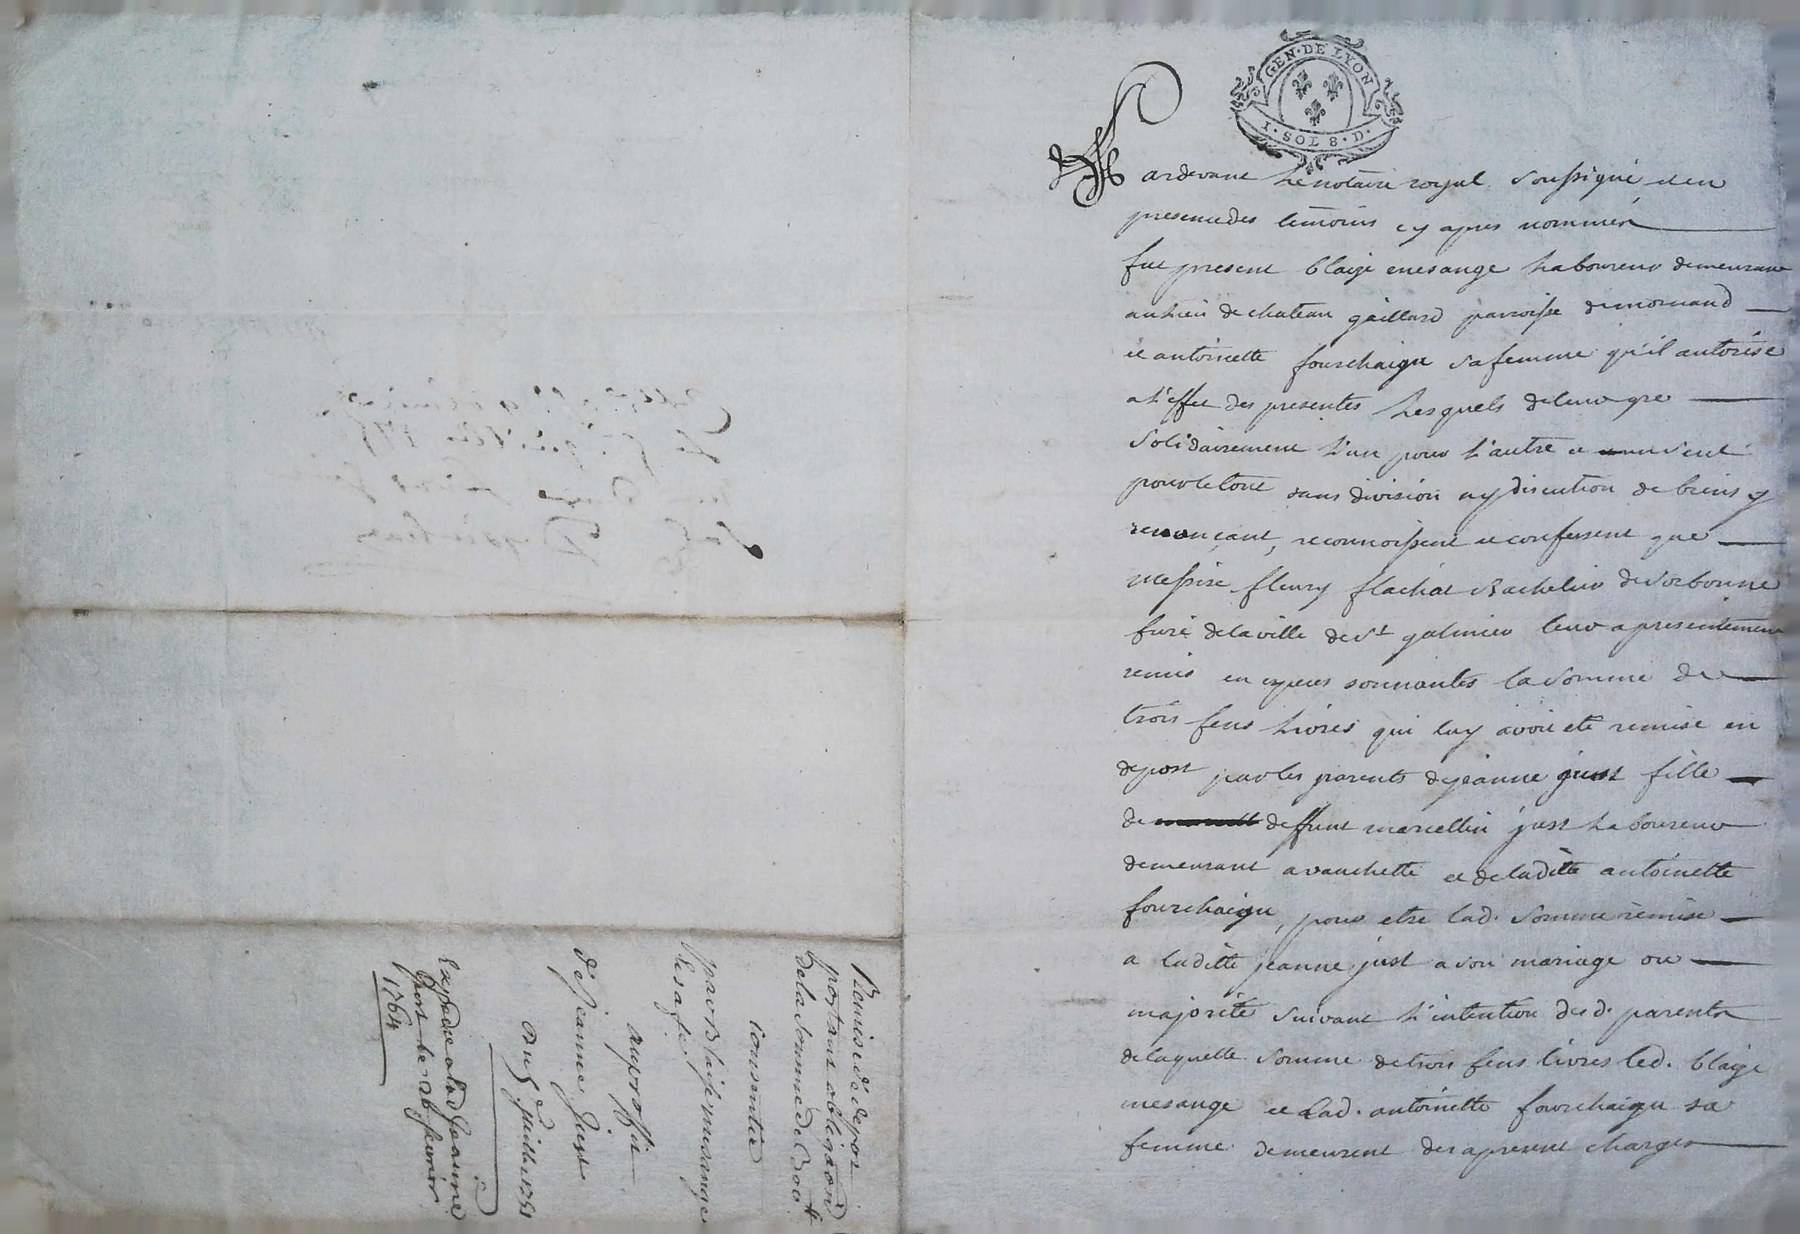 GEN · DE LYON
I · SOL 8 · D ·
Pardevant Le notaire royal soussigné et en
presence des temoins cy apres nommés
fut present blaize mesange Laboureur demeurant
au lieu de chateau gaillard parroisse de mornand
et antoinette fourchaigu sa femme qu'il autorise
a l'effet des presentes Lesquels de leur gre
solidairement L'un pour L'autre et un seul
pour le tout sans division ny discution de biens y
renonçant, reconnoissent et confessent que
messire fleury flachat Bachelier de sorbonne
Curé de la ville de St galmier leur a presentement
remis en especes sonnantes la somme de
trois Cens Livres qui luy avoit eté remise en
depost par les parents de jeanne just fille
de deffunt marcellin just Laboureur
demeurant a vauchette et de laditte antoinette
fourchaigu, pour etre lad. somme remise
a laditte jeanne just a son mariage ou
majorité suivant L'intention des d. parents
de laquelle somme de trois Cens livres led. blaize
mesange et Lad. antoinette fourchaigu sa
femme demeurent des a present chargés
Remise de depost
portant obligaōn
de la somme de 300 ₶
consentie
par Blaise mesange
et sa fe.
au proffit
de Jeanne Just
du 5e. juillet 1751
Expedié a lad Jeanne
just le 26 fevrier
1764